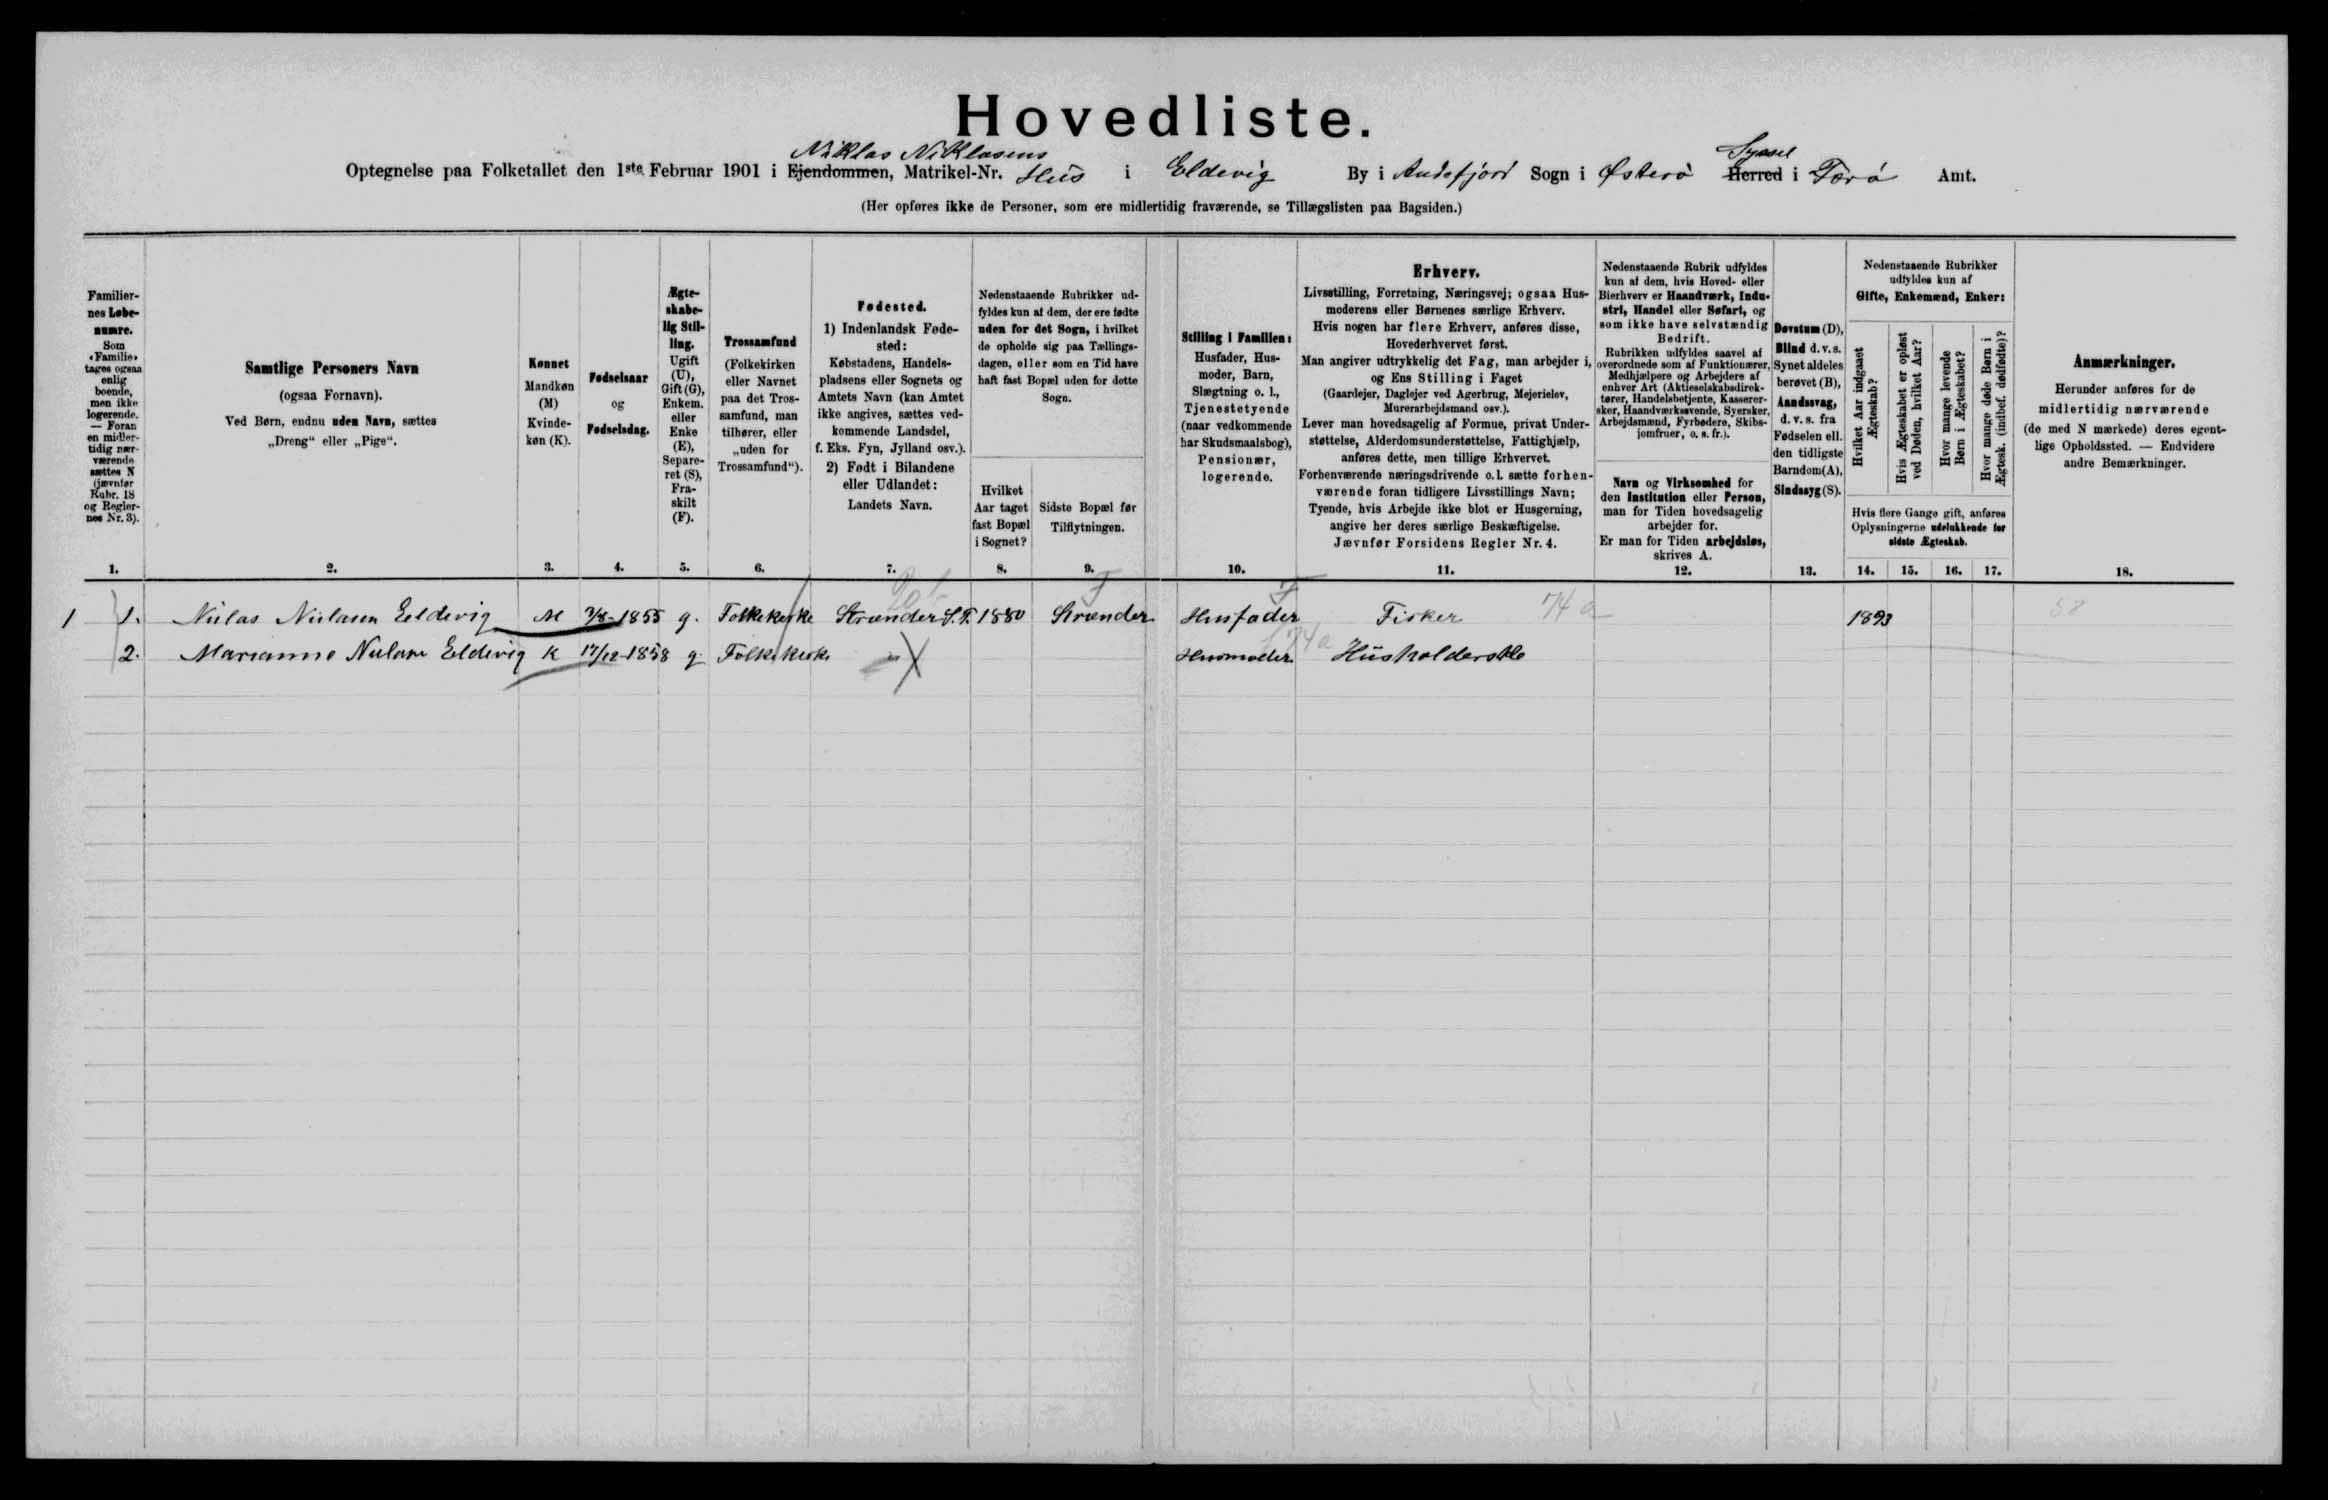 Hovedliste.
Niklas Niklasens Syssel
Optegnelse paa Folketallet den 1ste Februar 1901 i Ejendommen, Matrikel-Nr. Hus i Eldevig By i Andefjord Sogn i Østerø Herred i Færø Amt.
(Her opføres ikke de Personer, som ere midlertidig fraværende, se Tillægslisten paa Bagsiden.)
Familier-
nes Løbe-
numre.
Som
«Familie»
tages ogsaa
enlig
boende,
men ikke
logerende.
— Foran
en midler-
tidig nær-
værende
sættes N
(jævnfør
Rubr. 18
og Regler-
nes Nr. 3).
1.
Samtlige Personers Navn
(ogsaa Fornavn).
Ved Børn, endnu uden Navn, sættes
„Dreng“ eller „Pige“.
2.
Kønnet
Mandkøn
(M)
Kvinde-
køn (K).
3.
Fødselsaar
og
Fødselsdag.
4.
Ægte-
skabe-
lig Stil-
ling.
Ugift
(U),
Gift (G),
Enkem.
eller
Enke
(E),
Separe-
ret (S),
Fra-
skilt
(F).
5.
Trossamfund
(Folkekirken
eller Navnet
paa det Tros-
samfund, man
tilhører, eller
„uden for
Trossamfund“).
6.
Fødested.
1) Indenlandsk Føde-
sted:
Købstadens, Handels-
pladsens eller Sognets og
Amtets Navn (kan Amtet
ikke angives, sættes ved-
kommende Landsdel,
f. Eks. Fyn, Jylland osv.).
2) Født i Bilandene
eller Udlandet:
Landets Navn.
7.
Nedenstaaende Rubrikker ud-
fyldes kun af dem, der ere fødte
uden for det Sogn, i hvilket
de opholde sig paa Tællings-
dagen, eller som en Tid have
haft fast Bopæl uden for dette
Sogn.
Hvilket
Aar taget
fast Bopæl
i Sognet?
8.
Sidste Bopæl før
Tilflytningen.
9.
Stilling i Familien:
Husfader, Hus-
moder, Barn,
Slægtning o. l.,
Tjenestetyende
(naar vedkommende
har Skudsmaalsbog),
Pensionær,
logerende.
10.
Erhverv.
Livsstilling, Forretning, Næringsvej; ogsaa Hus-
moderens eller Børnenes særlige Erhverv.
Hvis nogen har flere Erhverv, anføres disse,
Hovederhvervet først.
Man angiver udtrykkelig det Fag, man arbejder i,
og Ens Stilling i Faget
(Gaardejer, Daglejer ved Agerbrug, Mejerielev,
Murerarbejdsmand osv.).
Lever man hovedsagelig af Formue, privat Under-
støttelse, Alderdomsunderstøttelse, Fattighjælp,
anføres dette, men tillige Erhvervet.
Forhenværende næringsdrivende o.l. sætte forhen-
værende foran tidligere Livsstillings Navn;
Tyende, hvis Arbejde ikke blot er Husgerning,
angive her deres særlige Beskæftigelse.
Jævnfør Forsidens Regler Nr. 4.
11.
Nedenstaaende Rubrik udfyldes
kun af dem, hvis Hoved- eller
Bierhverv er Haandværk, Indu-
stri, Handel eller Søfart, og
som ikke have selvstændig
Bedrift.
Rubrikken udfyldes saavel af
overordnede som af Funktionærer,
Medhjælpere og Arbejdere af
enhver Art (Aktieselskabsdirek-
tører, Handelsbetjente, Kasserer-
sker, Haandværkssvende, Syersker,
Arbejdsmænd, Fyrbødere, Skibs-
jomfruer, o. s. fr.).
Navn og Virksomhed for
den Institution eller Person,
man for Tiden hovedsagelig
arbejder for.
Er man for Tiden arbejdsløs,
skrives A.
12.
Døvstum (D),
Blind d. v. s.
Synet aldeles
berøvet (B),
Aandssvag,
d. v. s. fra
Fødselen ell.
den tidligste
Barndom(A),
Sindssyg (S).
13.
Nedenstaaende Rubrikker
udfyldes kun af
Gifte, Enkemænd, Enker:
Hvilket Aar indgaaet
Ægteskab?
Hvis Ægteskabet er opløst
ved Døden, hvilket Aar?
Hvor mange levende
Børn i Ægteskabet?
Hvor mange døde Børn i
Ægtesk. (indbef. dødfødte)?
Hvis flere Gange gift, anføres
Oplysningerne udelukkende for
sidste Ægteskab.
14. 15. 16. 17.
Anmærkninger.
Herunder anføres for de
midlertidig nærværende
(de med N mærkede) deres egent-
lige Opholdssted. — Endvidere
andre Bemærkninger.
18.
1 1. Niclas Niclasen Eldevig M 3/8-1855 g. Folkekirke Strænder S. F. 1880 Strænder Husfader Fisker 74 a 1893 58
2. Marianne Niclasen Eldevig K 17/12-1858 g. Folkekirke " Husmoder 74a Husholderske